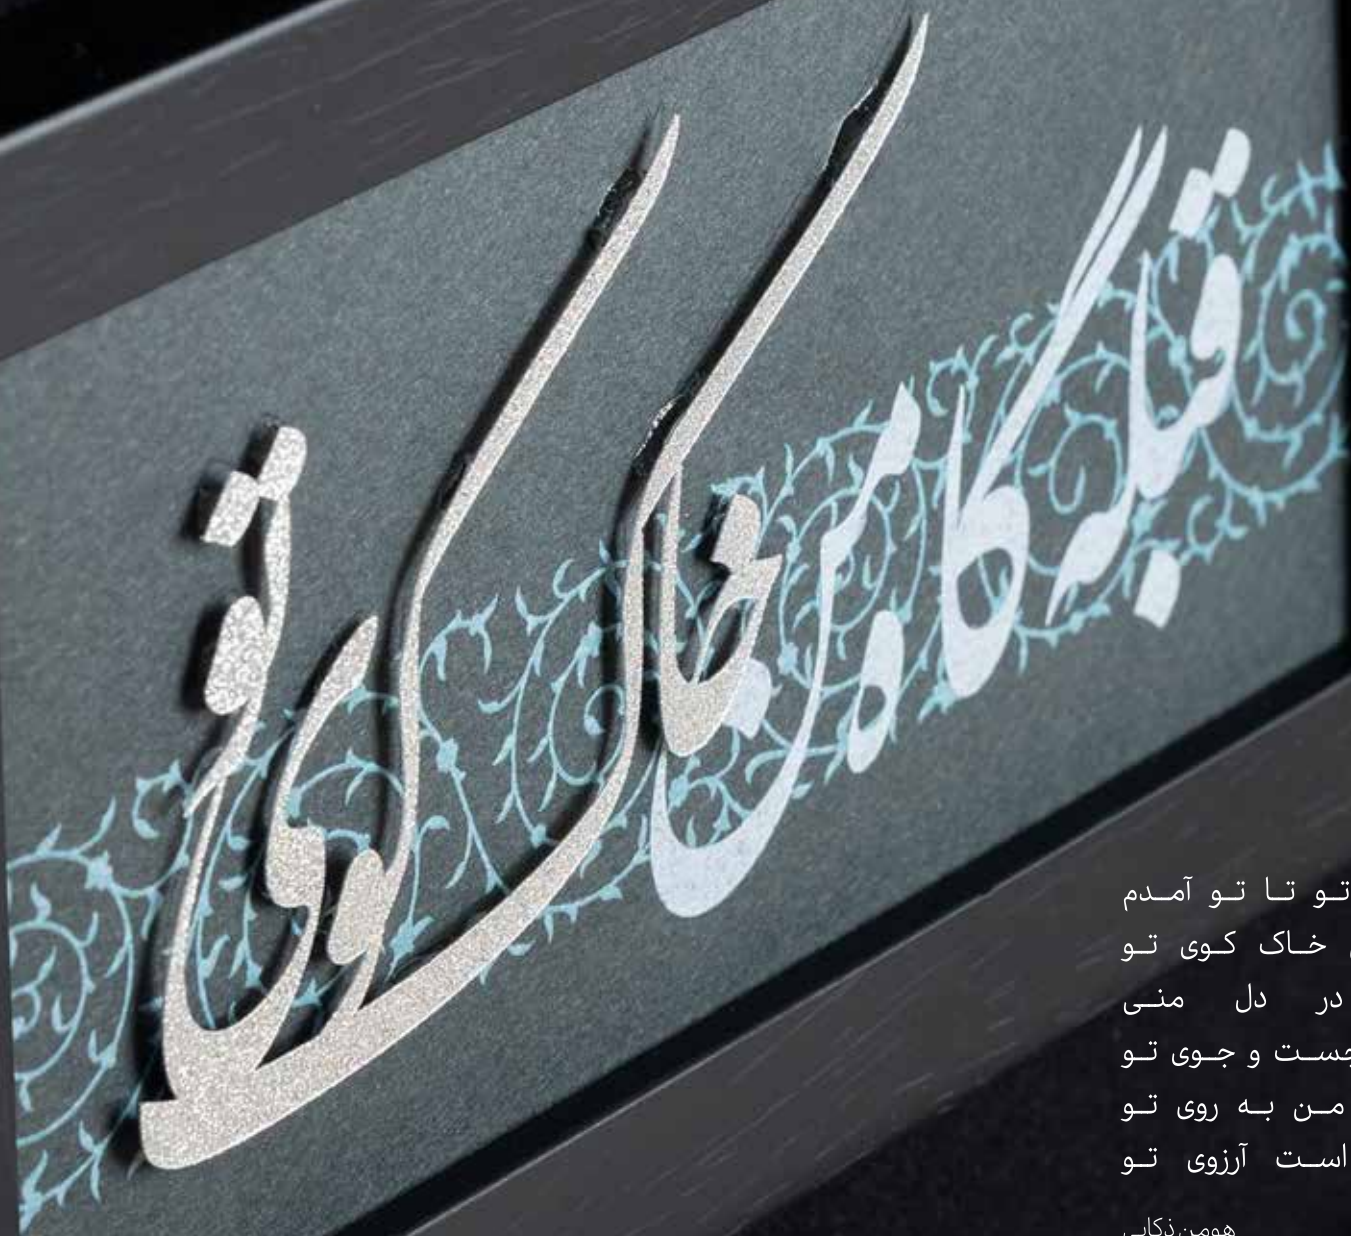 قبله گاه من خاک کوی تو
تـو تـا تـو آمـدم
خـاک کـوی تـو
در دل منـی
جسـت و جـوی تـو
مـن بـه روی تـو
اسـت آرزوی تـو
هومن ذکایی